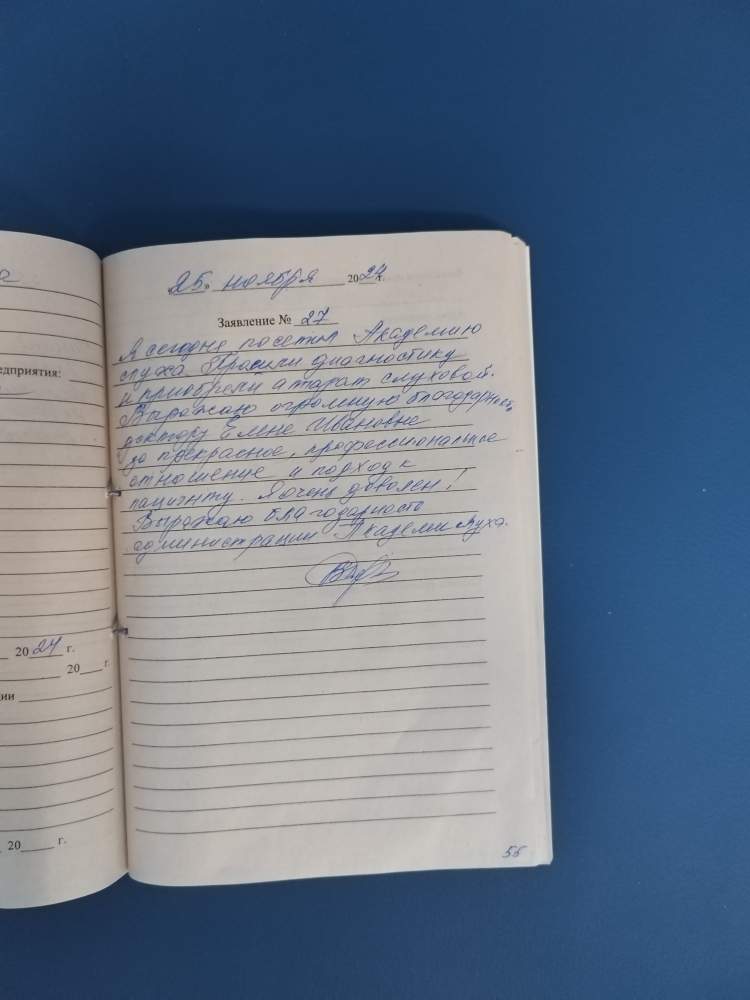 а
едприятия:
2024 г.
20 г.
ции
20 г.
"25" ноября 2024г.
Заявление № 27
Я сегодне посетил Академию
слуха. Прошли диагностику
и приобрели аппарат слуховой.
Выражаю огромную благодарность
доктору Елене Ивановне
за прекрасное, профессиональное
отношение и подход к
пациенту. Я очень доволен!
Выражаю благодарность
администрации Академии слуха.
56